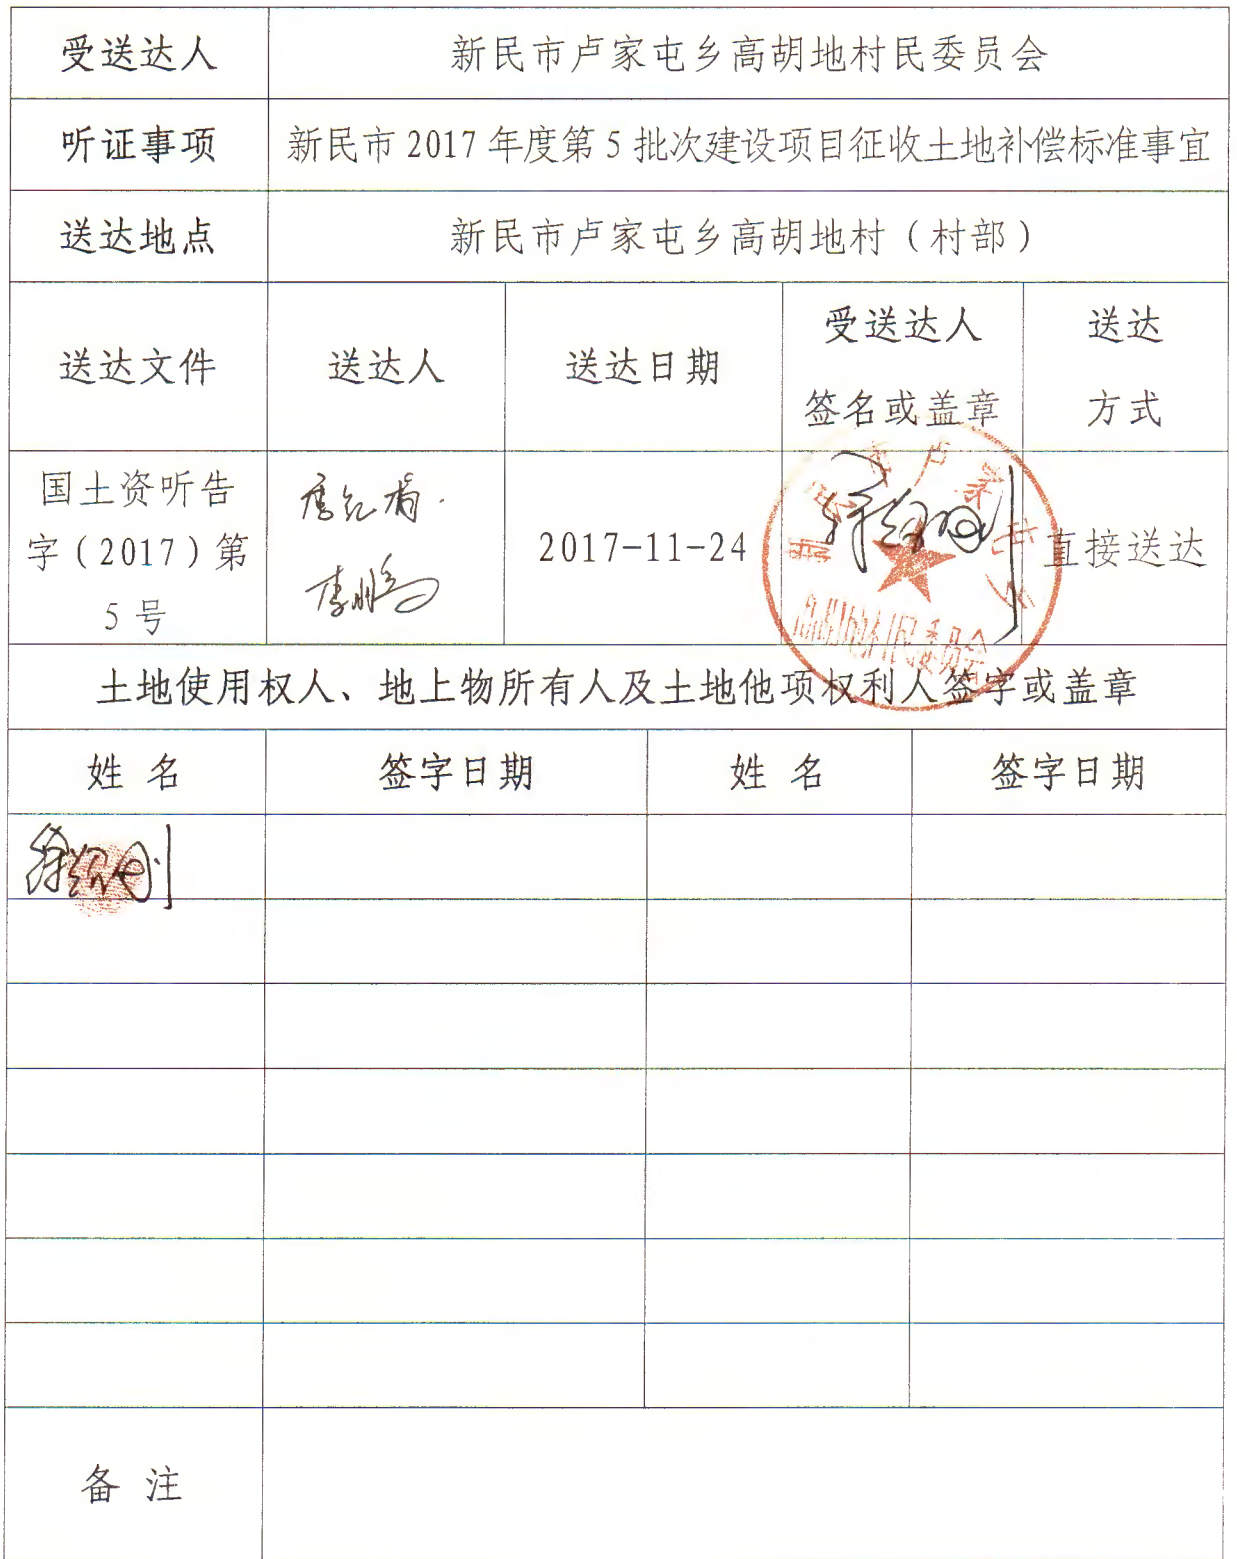 受送达人 新民市卢家屯乡高胡地村民委员会
听证事项 新民市 2017 年度第 5 批次建设项目征收土地补偿标准事宜
送达地点 新民市卢家屯乡高胡地村（村部）
送达文件 送达人 送达日期 受送达人 送达
签名或盖章 方式
国土资听告
字（2017）第 2017-11-24 直接送达
5 号
土地使用权人、地上物所有人及土地他项权利人签字或盖章
姓 名 签字日期 姓 名 签字日期
备 注